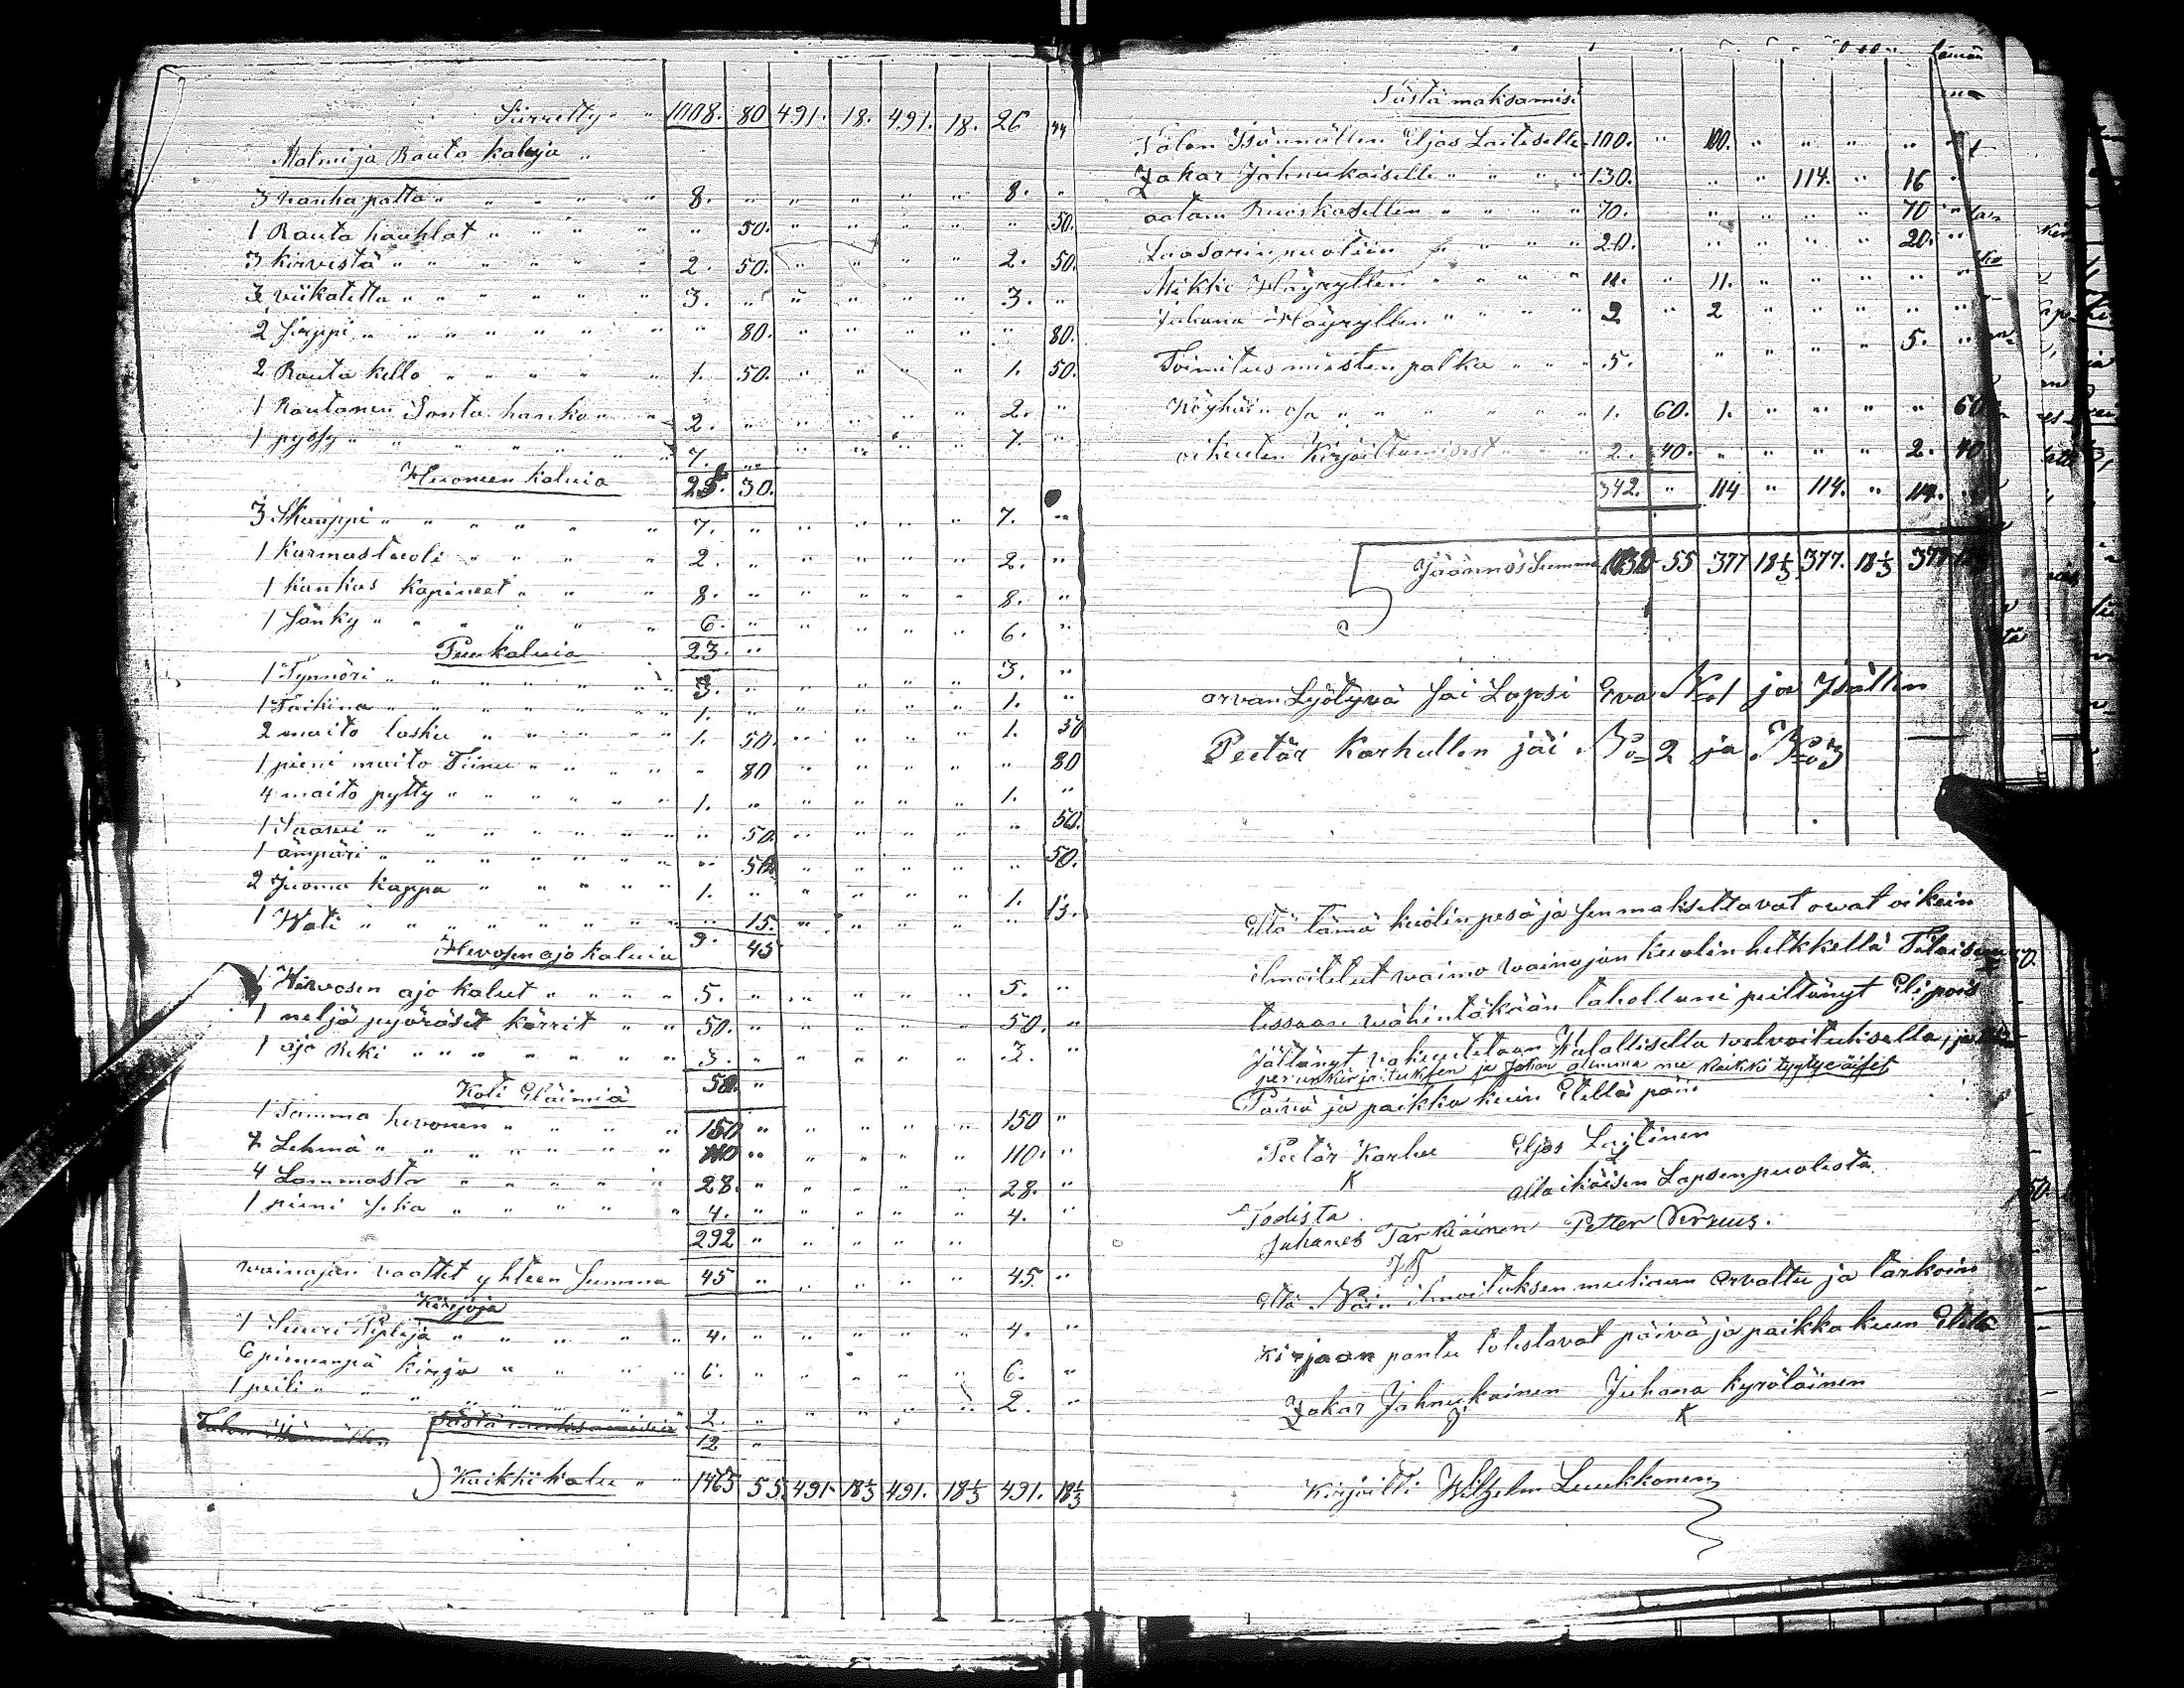 Siirretty " 1008. 80 491. 18. 491. 18. 26 44
Malmi ja Rauta kaluja "
3 vanha patta " " " " " 8. " " " " " 8. "
1 Rauta hauhlat " " " " " 50. " " " " " 50.
3 kirvestä " " " " " 2. 50. " " " " 2. 50.
3 viikatetta " " " " " 3. " " " " " 3. "
2 sirppi " " " " " " 80. " " " " " 80.
2 Rauta kello " " " " " 1. 50. " " " " 1. 50.
1 Rautanen Sonta hanko " " 2. " " " " " 2. "
1 pyssy " " " " " 7. " " " " " 7. "
Huoneen kaluia 25. 30.
3 Skaappi " " " " " 7. " " " " " 7. "
1 karmastuoli " " " " 2. " " " " " 2. "
1 kankas kapineet " " " 8. " " " " " 8. "
1 sänky " " " " " 6. " " " " " 6. "
Puukaluia 23. "
1 Tynnöri " " " " " 3. " " " " " 3. "
1 Taikina " " " " " 1. " " " " " 1. "
2 maito " " " " 1. 50. " " " " 1. 50
1 pieni maito Tiinu " " " " " 80 " " " " " 80
4 maito pytty " " " " " 1. " " " " " 1. "
1 Saavi " " " " " " 50. " " " " " 50.
1 ämpäri " " " " " " 50. " " " " " 50.
2 Juoma kappa " " " " 1. " " " " " 1.
1 Wati " " " " " " 15. " " " " " 15.
Hevosen ajo kaluia 9. 45
1 Hevosen ajo kalut " " " " 5. " " " " " 5. "
1 neljä pyöräset kärrit " " 50. " " " " " 50. "
1 ajo Reki " " " " " 3. " " " " " 3. "
Koti Eläimiä 58. "
1 Tamma hevonen " " " " 150 " " " " " 150 "
7 Lehmä " " " " " 110 " " " " " 110. "
4 Lammasta " " " " 28. " " " " " 28. "
1 pieni sika " " " " 4. " " " " " 4. "
292 " " " " "
wainajan vaattet yhteen summa 45 " " " " " 45. "
Kirjoja
1 Suuri Piplija " " " " 4. " " " " " 4. "
6 pienempä kirja " " " 6. " " " " " 6. "
1 peili " " " " " 2. " " " " " 2. "
Talon Isännällen Tästä maksamisia 12 "
Kaikki kalu " " 1473 55. 491. 18⅓ 491. 18⅓ 491. 18⅓
Tästä maksamisi
Talon Isännällen Eljas Laitiselle 100. " 100. " " " " "
Zakar Jahnukaiselle " " " 130. " " 114. " 16 "
aatam Ruoskasellen " " " 70. " " " " 70 "
Laasarinpuolein " " " 20. " " " " 20. "
Mikki Häyryllen " " " 11. " 11. " " " " "
Juhana Häyryllen " " " 2 " 2 " " " " "
Toimitus miesten palka " " 5. " " " " 5. "
köyhäin osa " " " " " 1. 60. 1. " " " " 60
oikeuten kirjoittamisest " " 2. 40. " " " " 2. 40
342. " 114 " 114. " 114. "
Jäännös Summa 55 377 18⅓ 377. 18⅓ 377
arvan Lyötyvä sai Lapsi Eva No 1 ja Isällen
Peetär Karhullen jäi No 2 ja No 3
Että tämä kuolin pesä ja sen maksettavat owat oikein
ilmoitetut waimo wainajan kuolin hetkkellä
wähintäkään tahollani peittänyt Eli pois
Jättänyt wakuutetaan Walallisella welvoituksella
perunkirjoituksen ja jakon olemma me kaikki tyytyväiset
Päivä ja paikka kuin Ellellä päin
Peetär Karhu Eljas Laitinen
K L
Alla ikäisen Lapsen puolesta
Todista
Juhanes Tarkiainen Petter
JT
Että Näin ilmoituksen mukaan arvattu ja tarkoin
kirjaan pantu totistavat päivä ja paikka kuin Ellellä
Zakar Jahnukainen Juhana Kyröläinen
K
Kirjoitti Wilhelm Luukkonen